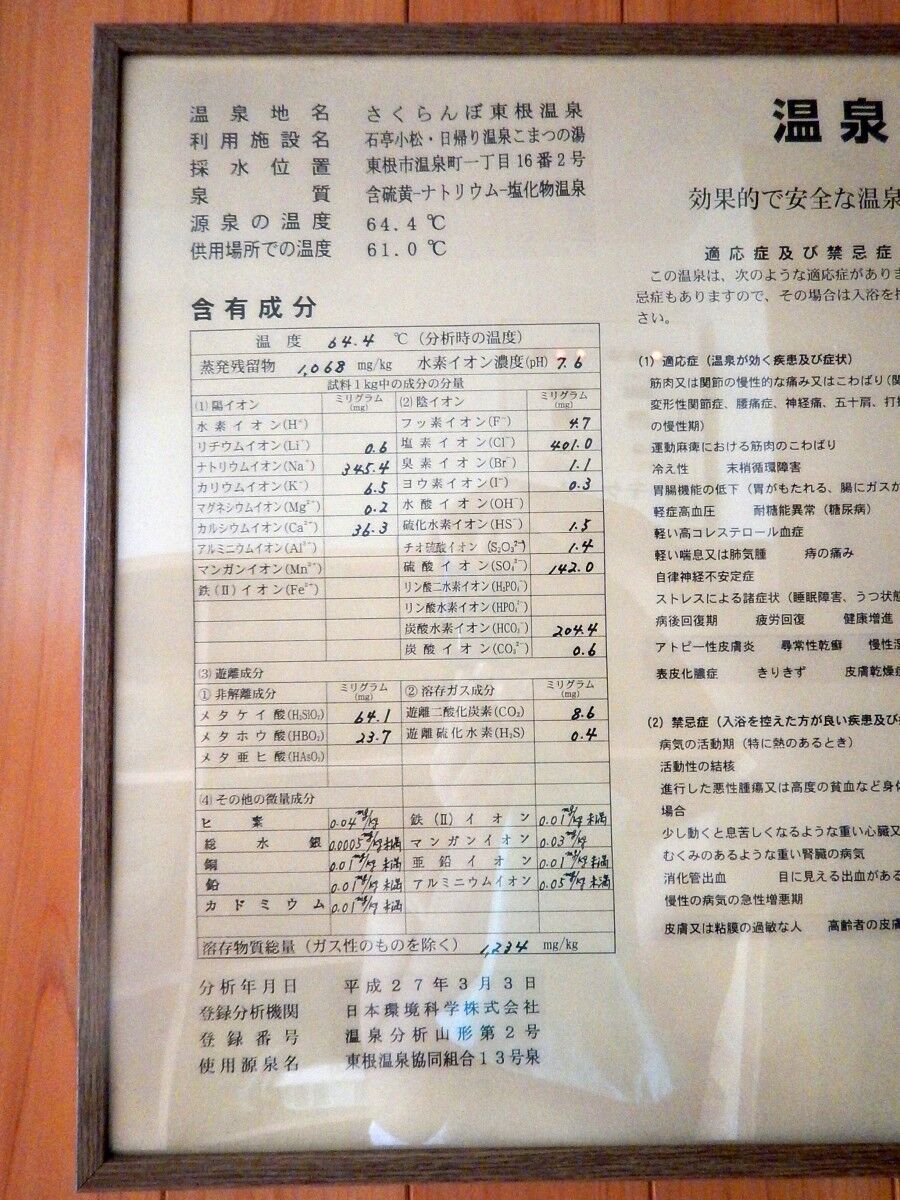 温泉地名 さくらんぼ東根温泉
利用施設名 石亭小松・日帰り温泉こまつの湯
採水位置 東根市温泉町一丁目16番2号
泉質 含硫黄-ナトリウム-塩化物温泉
源泉の温度 64.4 ℃
供用場所での温度 61.0 ℃
含有成分
温度 64.4 ℃ (分析時の温度)
蒸発残留物 1,068 mg/kg 水素イオン濃度(pH) 7.6
試料1kg中の成分の分量
(1) 陽イオン ミリグラム(mg) (2) 陰イオン ミリグラム(mg)
水素イオン(H⁺) フッ素イオン(F⁻) 4.7
リチウムイオン(Li⁺) 0.6 塩素イオン(Cl⁻) 401.0
ナトリウムイオン(Na⁺) 345.4 臭素イオン(Br⁻) 1.1
カリウムイオン(K⁺) 6.5 ヨウ素イオン(I⁻) 0.3
マグネシウムイオン(Mg²⁺) 0.2 水酸イオン(OH⁻)
カルシウムイオン(Ca²⁺) 36.3 硫化水素イオン(HS⁻) 1.5
アルミニウムイオン(Al³⁺) チオ硫酸イオン (S₂O₃²⁻) 1.4
マンガンイオン(Mn²⁺) 硫酸イオン(SO₄²⁻) 142.0
鉄(II)イオン(Fe²⁺) リン酸二水素イオン(H₂PO₄⁻)
リン酸水素イオン(HPO₄²⁻)
炭酸水素イオン(HCO₃⁻) 204.4
炭酸イオン(CO₃²⁻) 0.6
(3) 遊離成分
① 非解離成分 ミリグラム(mg) ② 溶存ガス成分 ミリグラム(mg)
メタケイ酸(H₂SiO₃) 64.1 遊離二酸化炭素(CO₂) 8.6
メタホウ酸(HBO₂) 23.7 遊離硫化水素(H₂S) 0.4
メタ亜ヒ酸(HAsO₂)
(4) その他の微量成分
ヒ素 0.04mg/kg 鉄(II)イオン 0.01mg/kg未満
総水銀 0.0005mg/kg未満 マンガンイオン 0.03mg/kg
銅 0.01mg/kg未満 亜鉛イオン 0.01mg/kg未満
鉛 0.01mg/kg未満 アルミニウムイオン 0.05mg/kg未満
カドミウム 0.01mg/kg未満
溶存物質総量(ガス性のものを除く) 1,234 mg/kg
分析年月日 平成27年3月3日
登録分析機関 日本環境科学株式会社
登録番号 温泉分析山形第2号
使用源泉名 東根温泉協同組合13号泉
温泉
効果的で安全な温泉
適応症及び禁忌症
この温泉は、次のような適応症があり
忌症もありますので、その場合は入浴を
さい。
(1) 適応症(温泉が効く疾患及び症状)
筋肉又は関節の慢性的な痛み又はこわばり(
変形性関節症、腰痛症、神経痛、五十肩、打
の慢性期)
運動麻痺における筋肉のこわばり
冷え性 末梢循環障害
胃腸機能の低下(胃がもたれる、腸にガスが
軽症高血圧 耐糖能異常(糖尿病)
軽い高コレステロール血症
軽い喘息又は肺気腫 痔の痛み
自律神経不安定症
ストレスによる諸症状(睡眠障害、うつ状態
病後回復期 疲労回復 健康増進
アトピー性皮膚炎 尋常性乾癬 慢性
表皮化膿症 きりきず 皮膚乾燥
(2) 禁忌症(入浴を控えた方が良い疾患及び
病気の活動期(特に熱のあるとき)
活動性の結核
進行した悪性腫瘍又は高度の貧血など身
場合
少し動くと息苦しくなるような重い心臓又
むくみのあるような重い腎臓の病気
消化管出血 目に見える出血がある
慢性の病気の急性増悪期
皮膚又は粘膜の過敏な人 高齢者の皮